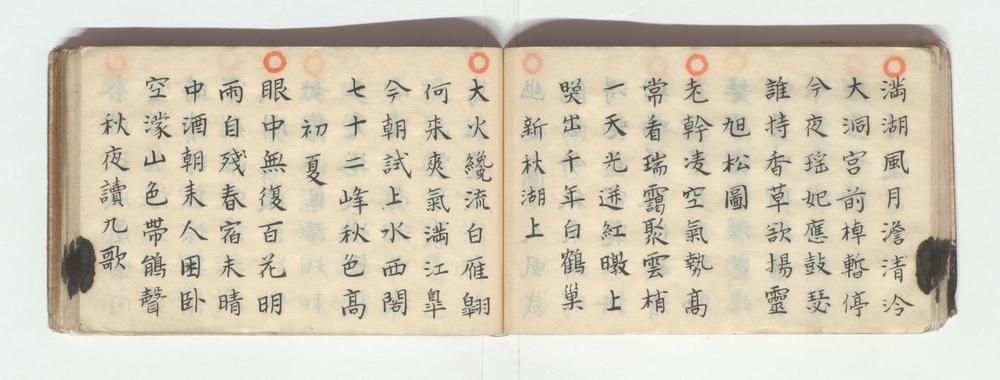 満湖風月澹清泠
大洞宮前棹暫停
今夜瑶妃應鼓瑟
誰持香草欲揚靈
旭松圖
老幹凌空氣勢高
常看瑞靄聚雲梢
一天光迸紅暾上
喚出千年白鶴巢
新秋湖上
大火纔流白雁翺
何来爽氣満江皐
今朝試上水西閣
七十二峰秋色高
初夏
眼中無復百花明
雨自殘春宿未晴
中酒朝来人困卧
空濛山色帯鵑聲
秋夜讀九歌